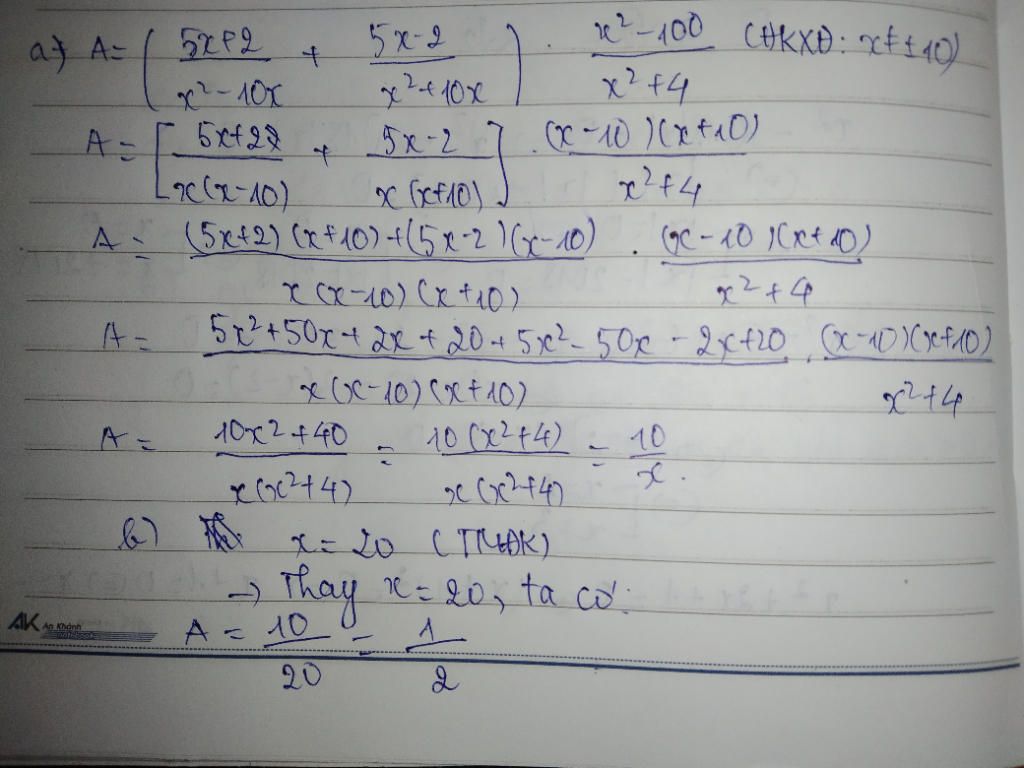 a) A = ( (5x+2)/(x² - 10x) + (5x-2)/(x² + 10x) ) . (x² - 100)/(x² + 4) (ĐKXĐ: x ≠ ±10)
A = [ (5x+2)/(x(x-10)) + (5x-2)/(x(x+10)) ] . ((x-10)(x+10))/(x²+4)
A = ((5x+2)(x+10)+(5x-2)(x-10))/(x(x-10)(x+10)) . ((x-10)(x+10))/(x²+4)
A = (5x²+50x+2x+20+5x²-50x-2x+20)/(x(x-10)(x+10)) . ((x-10)(x+10))/(x²+4)
A = (10x²+40)/(x(x²+4)) = (10(x²+4))/(x(x²+4)) = 10/x.
b) x = 20 (TMĐK)
→ Thay x = 20, ta có:
AK An Khánh
A = 10/20 = 1/2